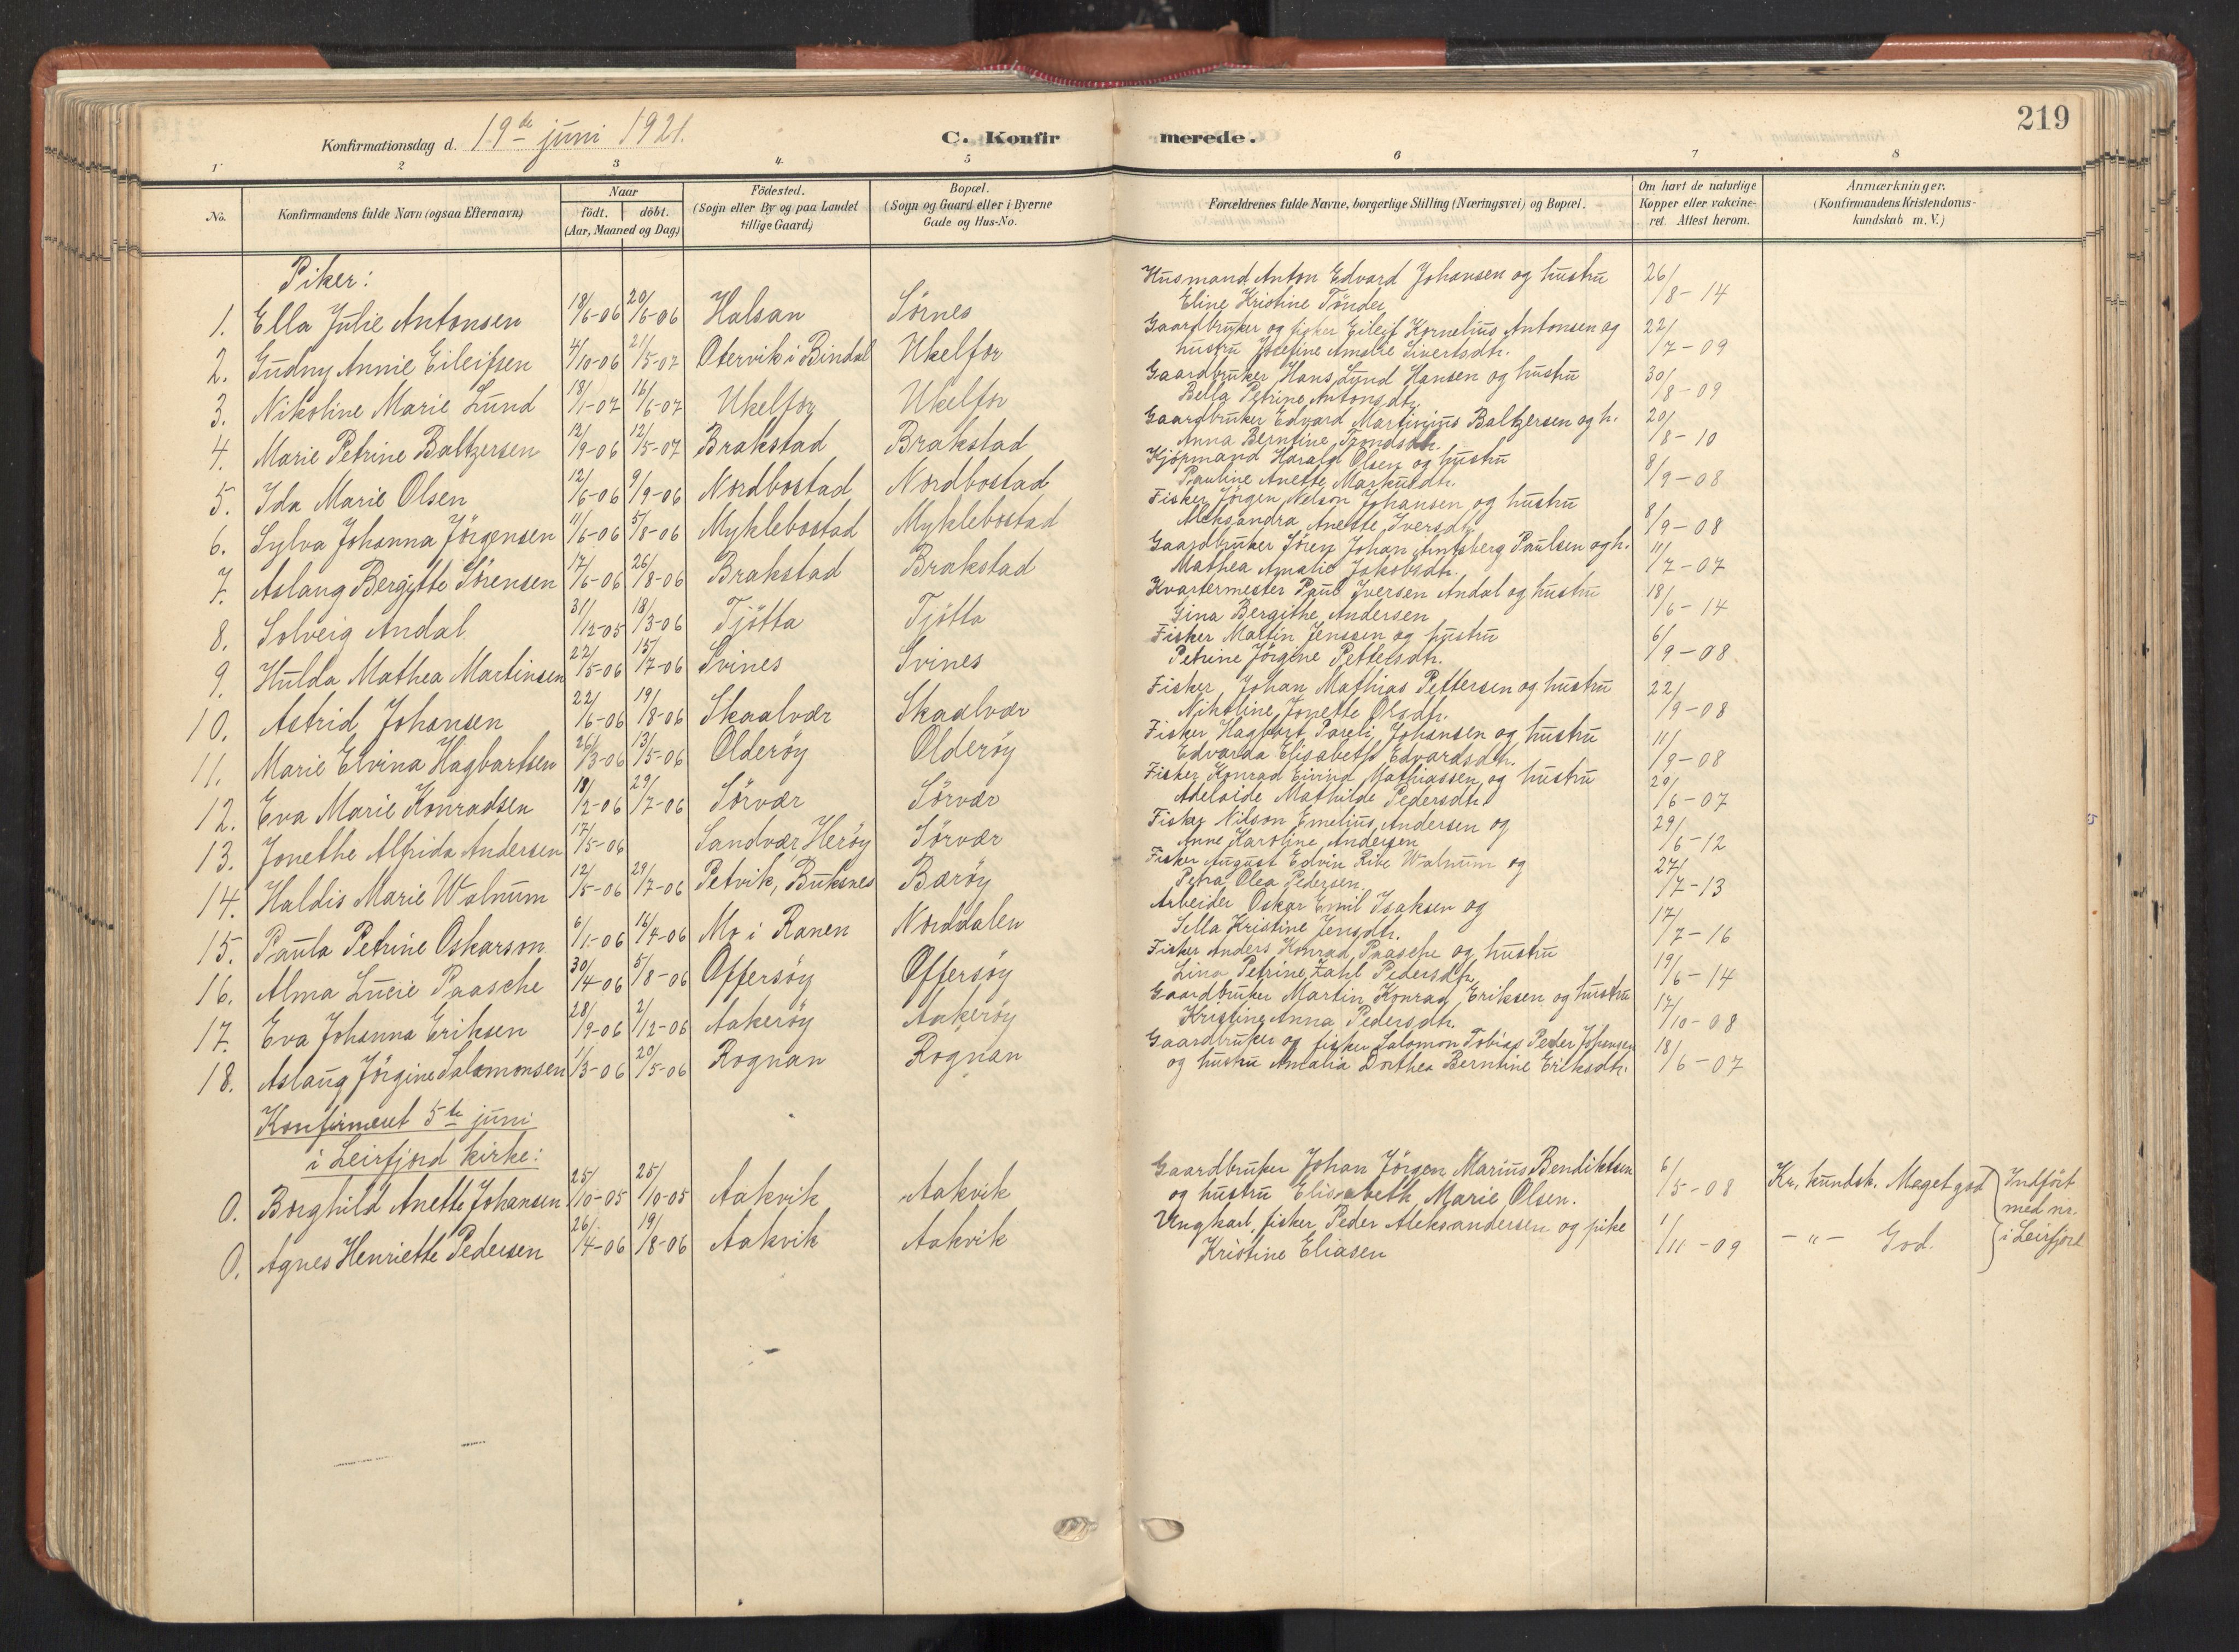 219
Konfirmationsdag d. 19de juni 1921.
C. Konfirmerede.
1 2 3 4 5 6 7 8
No.
Konfirmandens fulde Navn (ogsaa Efternavn)
Naar
födt. döbt.
(Aar, Maaned og Dag)
Födested.
(Sogn eller By og paa Landet
tillige Gaard)
Bopæl.
(Sogn og Gaard eller i Byerne
Gade og Hus-No.
Forældrenes fulde Navne, borgerlige Stilling (Næringsvei) og Bopæl.
Om havt de naturlige
Kopper eller vakcine-
ret. Attest herom.
Anmærkninger.
(Konfirmandens Kristendoms-
kundskab m. V.)
Piker:
1. Ella Julie Antonsen 18/6-06 20/6-06 Halsan Sörnes Husmand Anton Edvard Johansen og hustru 26/8-14
Eline Kristine Tönder
2. Gudny Annie Eileifsen 4/10-06 21/5-07 Otervik i Bindal Ukelfor Gaardbruker og fisker Eileif Kornelius Antonsen og 22/7-09
hustru Josefine Amalie Sivertsdtr.
3. Nikoline Marie Lund 18/1-07 16/6-07 Ukelfor Ukelfor Gaardbruker Hans Lund Hansen og hustru 30/8-09
Bella Petrine Antonsdtr.
4. Marie Petrine Baltzersen 12/9-06 12/5-07 Brakstad Brakstad Gaardbruker Edvard Martinius Baltzersen og h. 20/8-10
Anna Berntine Trondsdtr.
5. Ida Marie Olsen 12/6-06 9/9-06 Nordbostad Nordbostad Kjöpmand Harald Olsen og hustru 8/9-08
Pauline Anette Markusdtr.
6. Sylva Johanna Jörgensen 11/6-06 5/8-06 Myklebostad Myklebostad Fisker Jörgen Nelson Johansen og hustru 8/9-08
Aleksandra Anette Iversdtr.
7. Aslaug Bergitte Sörensen 17/6-06 26/8-06 Brakstad Brakstad Gaardbruker Sören Johan Antsberg Paulsen og h. 11/7-07
Mathea Amalie Jakobsdtr.
8. Solveig Andal 31/12-05 18/3-06 Tjötta Tjötta Kvartermester Paul Iversen Andal og hustru 18/6-14
Gina Bergithe Andersen
9. Hulda Mathea Martinsen 22/5-06 15/7-06 Svines Svines Fisker Martin Jenssen og hustru 6/9-08
Petrine Jörgine Pettersdtr.
10. Astrid Johansen 22/6-06 19/8-06 Skaalvær Skaalvær Fisker Johan Mathias Pettersen og hustru 22/9-08
Nikoline Jonette Olsdtr.
11. Marie Elvina Hagbartsen 26/3-06 13/5-06 Olderöy Olderöy Fisker Hagbart Pareli Johansen og hustru 11/9-08
Edvarda Elisabeth Edvardsdtr.
12. Eva Marie Konradsen 18/2-06 29/7-06 Sörvær Sörvær Fisker Konrad Eivind Mathiassen og hustru 29/6-07
Adelaide Mathilde Pedersdtr.
13. Jonethe Alfrida Andersen 17/5-06 Sandvær Heröy Sörvær Fisker Nilson Emelius Andersen og 29/6-12
Anne Karoline Andersen
14. Haldis Marie Walnum 12/5-06 29/7-06 Petvik, Buksnes Bæröy Fisker August Edvin Ribe Walnum og 27/7-13
Petra Olea Pedersen
15. Paula Petrine Oskarson 6/1-06 16/4-06 Mo i Ranen Norddalen Arbeider Oskar Emil Isaksen og 17/7-16
Silla Kristine Jensdtr.
16. Alma Lucie Paasche 30/4-06 5/8-06 Offersöy Offersöy Fisker Anders Konrad Paasche og hustru 19/6-14
Lina Petrine Zahl Pedersdtr.
17. Eva Johanna Eriksen 28/9-06 2/12-06 Aakeröy Aakeröy Gaardbruker Martin Konrad Eriksen og hustru 17/10-08
Kristine Anna Pedersdtr.
18. Aslaug Jörgine Salomonsen 1/3-06 20/5-06 Rognan Rognan Gaardbruker og fisker Salomon Tobias Peder Johansen 18/6-07
og hustru Amalia Dorthea Berntine Eriksdtr.
Konfirmeret 5te juni
i Leirfjord kirke:
0. Borghild Anette Johansen 25/10-05 25/10-05 Aakvik Aakvik Gaardbruker Johan Jörgen Marius Bendiktsen 6/5-08 Kr. kundsk. Maget god Indfört
og hustru Elisabeth Marie Olsen. med nr.
0. Agnes Henriette Pedersen 26/4-06 19/8-06 Aakvik Aakvik Ungkarl, fisker Peder Aleksandersen og pike 1/11-09 -"- God. i Leirfjord
Kristine Eliasen